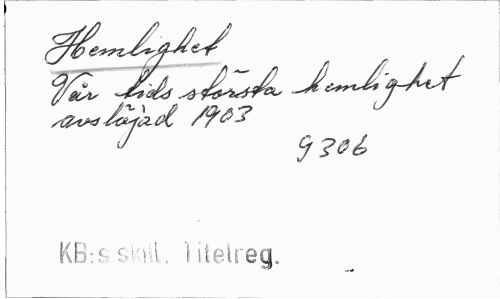 Hemlighet
Vår tids största hemlighet
avslöjad 1903
9306
KB:s skill. Titelreg.